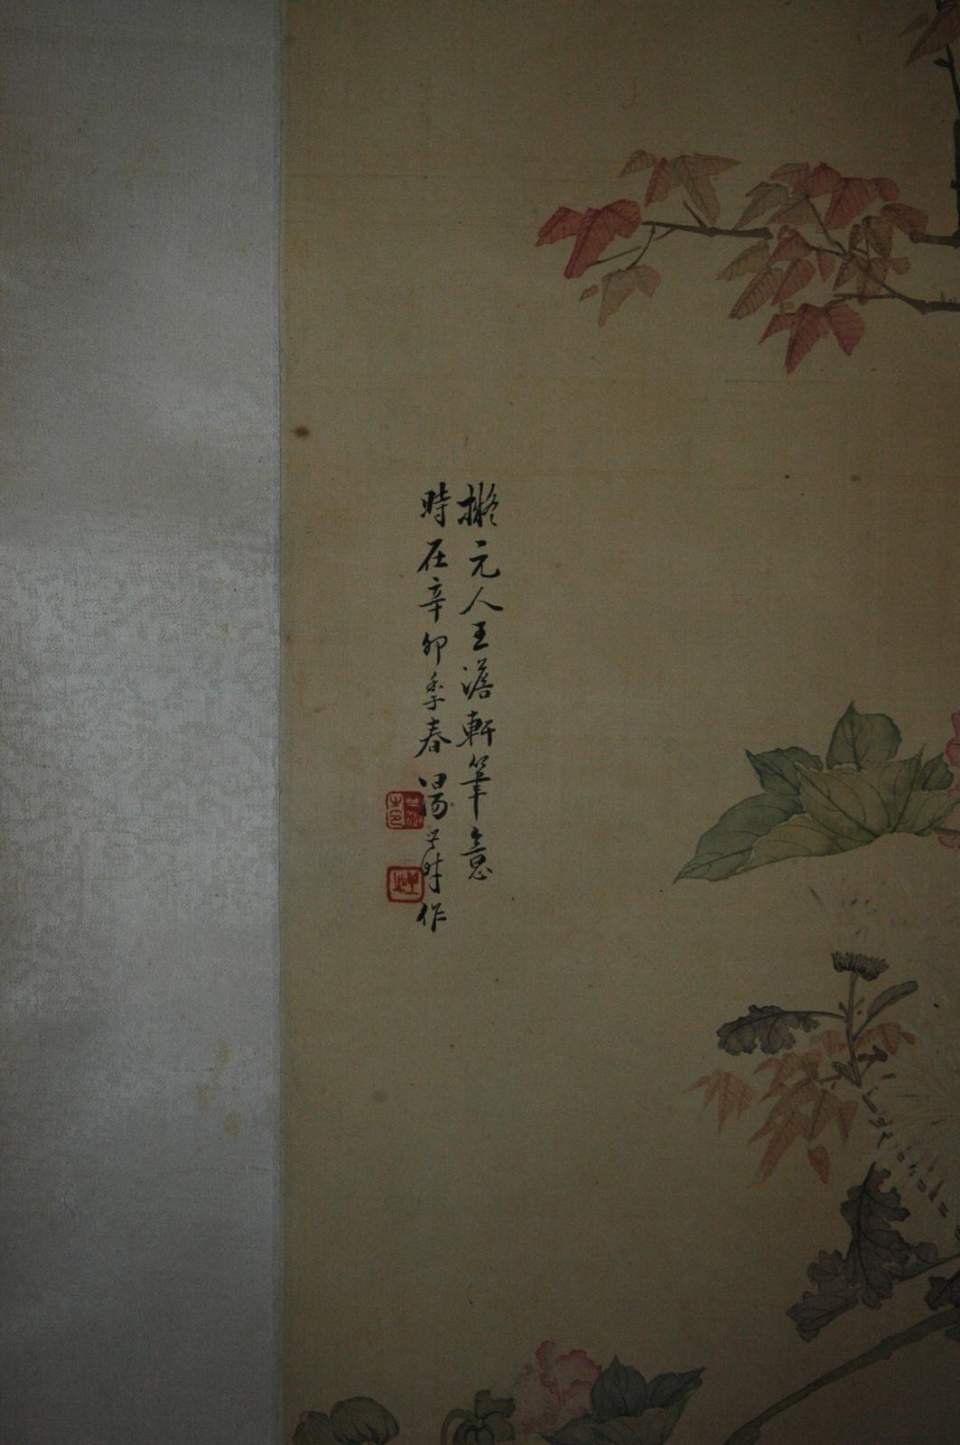 擬元人王澹軒筆意
時在辛卯季春湯世澍作